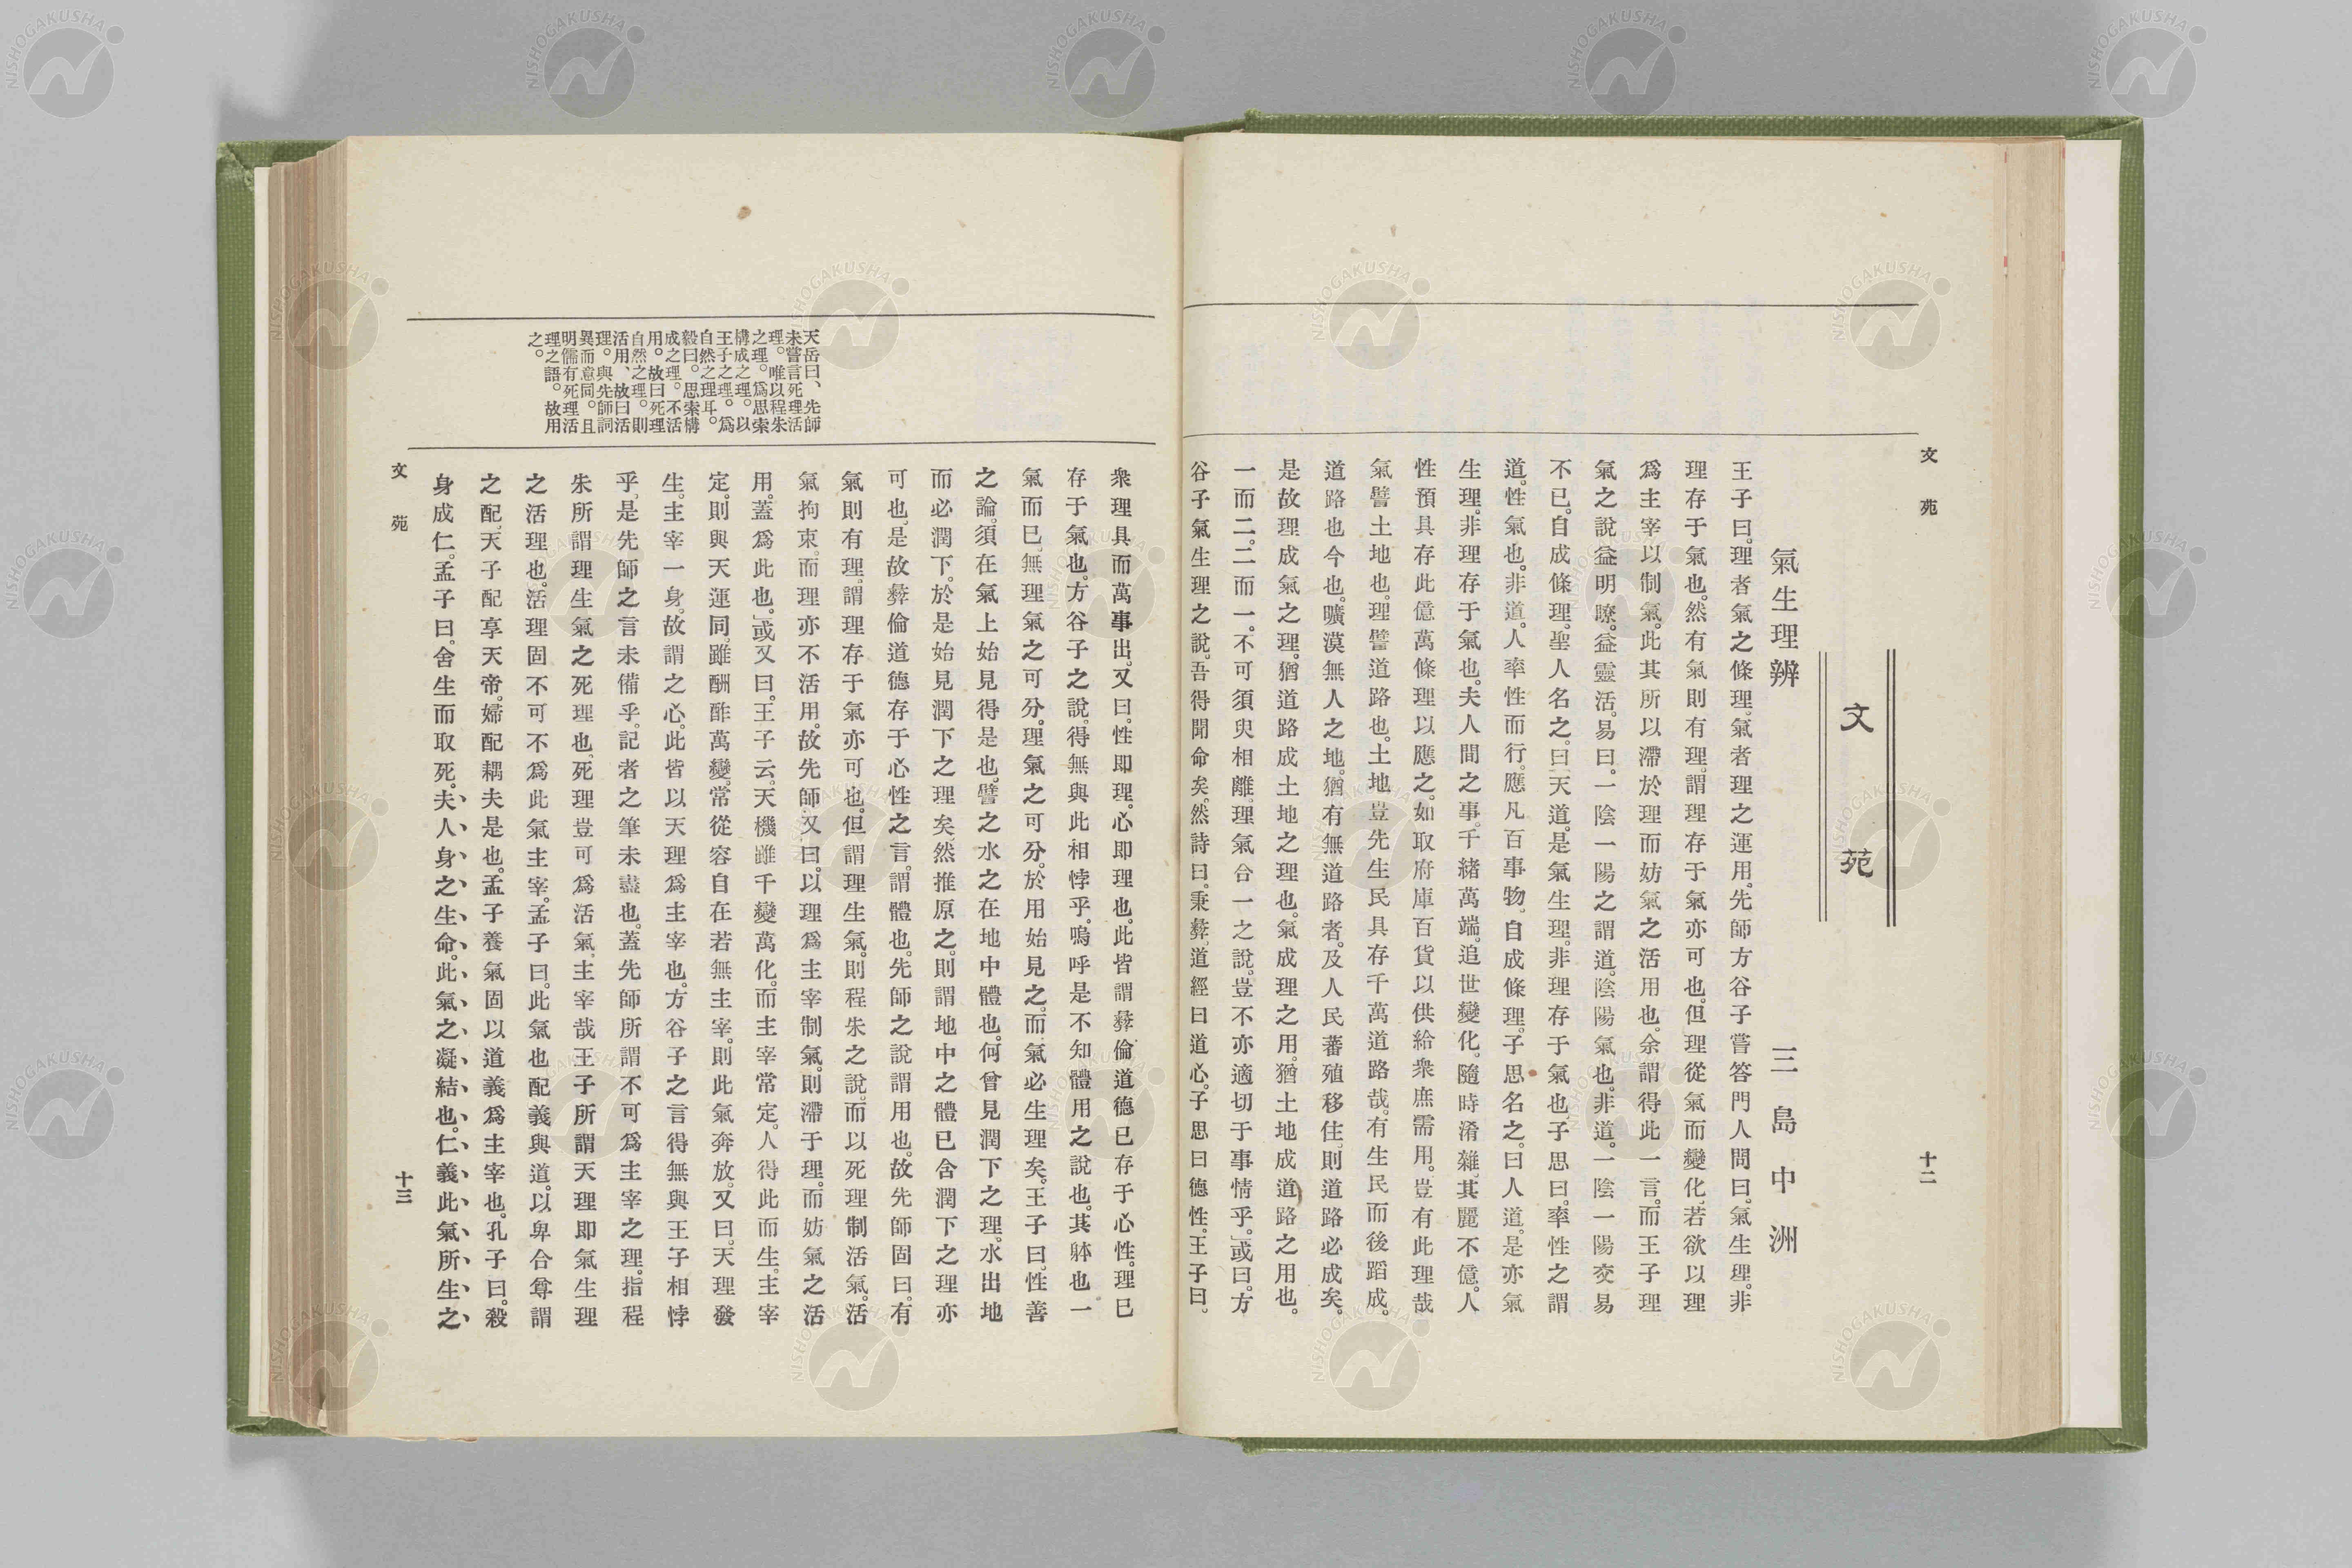 文苑
十二
文苑
氣生理辨　三島中洲
王子曰。理者氣之條理。氣者理之運用。先師方谷子嘗答門人問曰。氣生理。非
理存于氣也。然有氣則有理。謂理存于氣亦可也。但理從氣而變化。若欲以理
爲主宰以制氣。此其所以滯於理而妨氣之活用也。余謂得此一言。而王子理
氣之說益明瞭。益靈活。易曰。一陰一陽之謂道。陰陽氣也。非道。一陰一陽交易
不已。自成條理。聖人名之。曰天道。是氣生理。非理存于氣也。子思曰。率性之謂
道。性氣也。非道。人率性而行。應凡百事物。自成條理。子思名之。曰人道。是亦氣
生理。非理存于氣也。夫人間之事。千緒萬端。追世變化。隨時淆雜。其麗不億。人
性預具存此億萬條理以應之。如取府庫百貨以供給衆庶需用。豈有此理哉
氣譬土地也。理譬道路也。土地豈先生民具存千萬道路哉。有生民而後蹈成。
道路也今也。曠漠無人之地。猶有無道路者。及人民蕃殖移住。則道路必成矣。
是故理成氣之理。猶道路成土地之理也。氣成理之用。猶土地成道路之用也。
一而二。二而一。不可須臾相離。理氣合一之說。豈不亦適切于事情乎。」或曰。方
谷子氣生理之說。吾得聞命矣。然詩曰。秉彝。道經曰道心。子思曰德性。王子曰。
衆理具而萬事出。又曰。性即理。心即理也。此皆謂彝倫道德已存于心性。理已
存于氣也。方谷子之說。得無與此相悖乎。嗚呼是不知體用之說也。其躰也一
氣而已。無理氣之可分。理氣之可分。於用始見之。而氣必生理矣。王子曰。性善
之論。須在氣上始見得是也。譬之水之在地中體也。何曾見潤下之理。水出地
而必潤下。於是始見潤下之理矣。然推原之。則謂地中之體已含潤下之理亦
可也。是故彝倫道德存于心性之言。謂體也。先師之說謂用也。故先師固曰。有
氣則有理。謂理存于氣亦可也。但謂理生氣。則程朱之說。而以死理制活氣。活
氣拘束。而理亦不活用。故先師又曰。以理爲主宰制氣。則滯于理。而妨氣之活
用。蓋爲此也。」或又曰。王子云。天機雖千變萬化。而主宰常定。人得此而生。主宰
定。則與天運同。雖酬酢萬變。常從容自在若無主宰。則此氣奔放。又曰。天理發
生。主宰一身。故謂之心。此皆以天理爲主宰也。方谷子之言得無與王子相悖
乎。是先師之言未備乎。記者之筆未盡也。蓋先師所謂不可爲主宰之理。指程
朱所謂理生氣之死理也。死理豈可爲活氣。主宰哉王子所謂天理即氣生理
之活理也。活理固不可不爲此氣主宰。孟子曰。此氣也配義與道。以卑合尊謂
之配。天子配享天帝。婦配耦夫是也。孟子養氣固以道義爲主宰也。孔子曰。殺
身成仁。孟子曰。舍生而取死。夫人身之生命。此氣之凝結也。仁義此氣所生之
天岳曰、先師
未嘗言死理活
理。唯以程朱
之理。爲思索
構成之理。以
王子之理。爲
自然之理耳。
毅曰。思索構
成之理。不活
用。故曰死理
自然之理。則
活用、故曰活
理。與先師詞
異而意同。且
明儒有死理活
理之語。故用
之。
文苑
十三